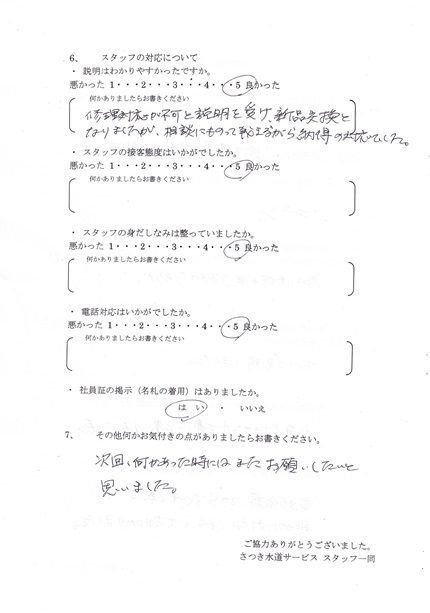 6、 スタッフの対応について
・ 説明はわかりやすかったですか。
悪かった 1・・・2・・・3・・・4・・・5 良かった
何かありましたらお書きください
修理対応が不可と説明を受け、新品交換と
なりましたが、相談にものって 納得の対応でした。
・ スタッフの接客態度はいかがでしたか。
悪かった 1・・・2・・・3・・・4・・・5 良かった
何かありましたらお書きください
・ スタッフの身だしなみは整っていましたか。
悪かった 1・・・2・・・3・・・4・・・5 良かった
何かありましたらお書きください
・ 電話対応はいかがでしたか。
悪かった 1・・・2・・・3・・・4・・・5 良かった
何かありましたらお書きください
・ 社員証の掲示（名札の着用）はありましたか。
はい ・ いいえ
7、 その他何かお気付きの点がありましたらお書きください。
次回、何かあった時にはまたお願いしたいと
思いました。
ご協力ありがとうございました。
さつき水道サービス スタッフ一同